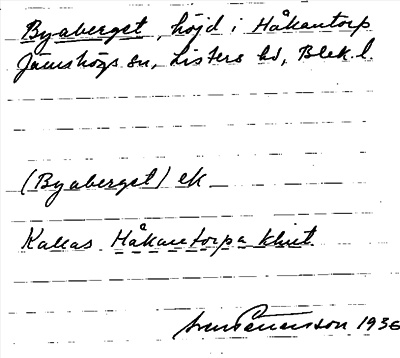 Byaberget, höjd i Håkantorp
Jämshögs sn, Listers hd, Blek. l.
(Byaberget) ek
Kallas Håkantorpa klint.
Sven Benson 1936